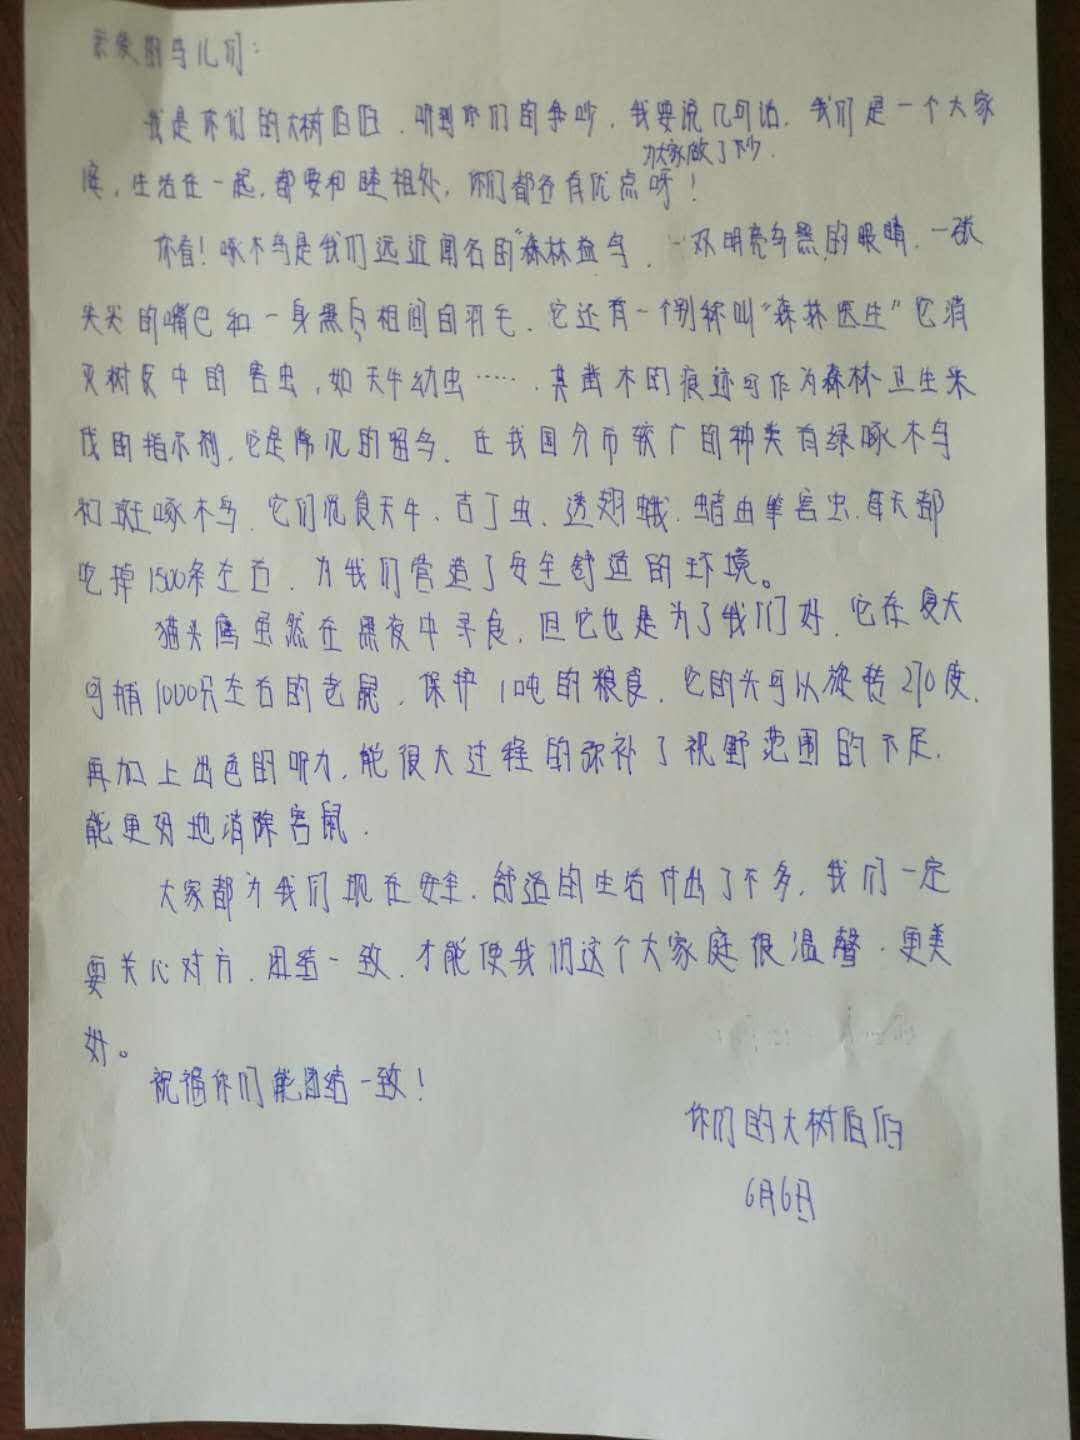 亲爱的鸟儿们:
我是你们的大树伯伯.听到你们的争吵,我要说几句话.我们是一个大家
为大家做了不少.
庭,生活在一起,都要和睦相处,你们都各有优点呀!
你看!啄木鸟是我们远近闻名的"森林益鸟.一双明亮乌黑的眼睛,一张
尖尖的嘴巴和一身黑白相间的羽毛.它还有一个别称叫"森林医生"它消
灭树皮中的害虫,如天牛幼虫……,其凿木的痕迹可作为森林卫生采
伐的指示剂,它是常见的留鸟.在我国分布较广的种类有绿啄木鸟
和斑啄木鸟.它们觅食天牛、吉丁虫、透翅蛾.蝽虫等害虫.每天都
吃掉1500条左右.为我们营造了安全舒适的环境。
猫头鹰虽然在黑夜中寻食,但它也是为了我们好.它在夏天
可捕1000只左右的老鼠,保护1吨的粮食.它的头可以旋转270度.
再加上出色的听力,能很大过程的弥补了视野范围的不足.
能更好地消除害鼠.
大家都为我们现在安全.舒适的生活付出了不多,我们一定
要关心对方.团结一致.才能使我们这个大家庭很温馨.更美
好。
祝福你们能团结一致!
你们的大树伯伯
6月6日